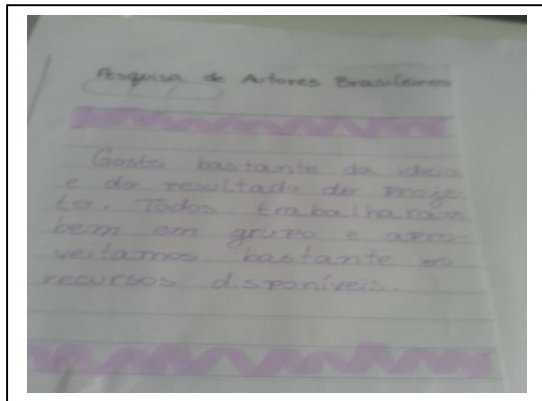 Pesquisa de Autores Brasileiros
Gostei bastante da ideia
e do resultado do proje-
to. Todos trabalharam
bem em grupo e apro-
veitamos bastante os
recursos disponíveis.